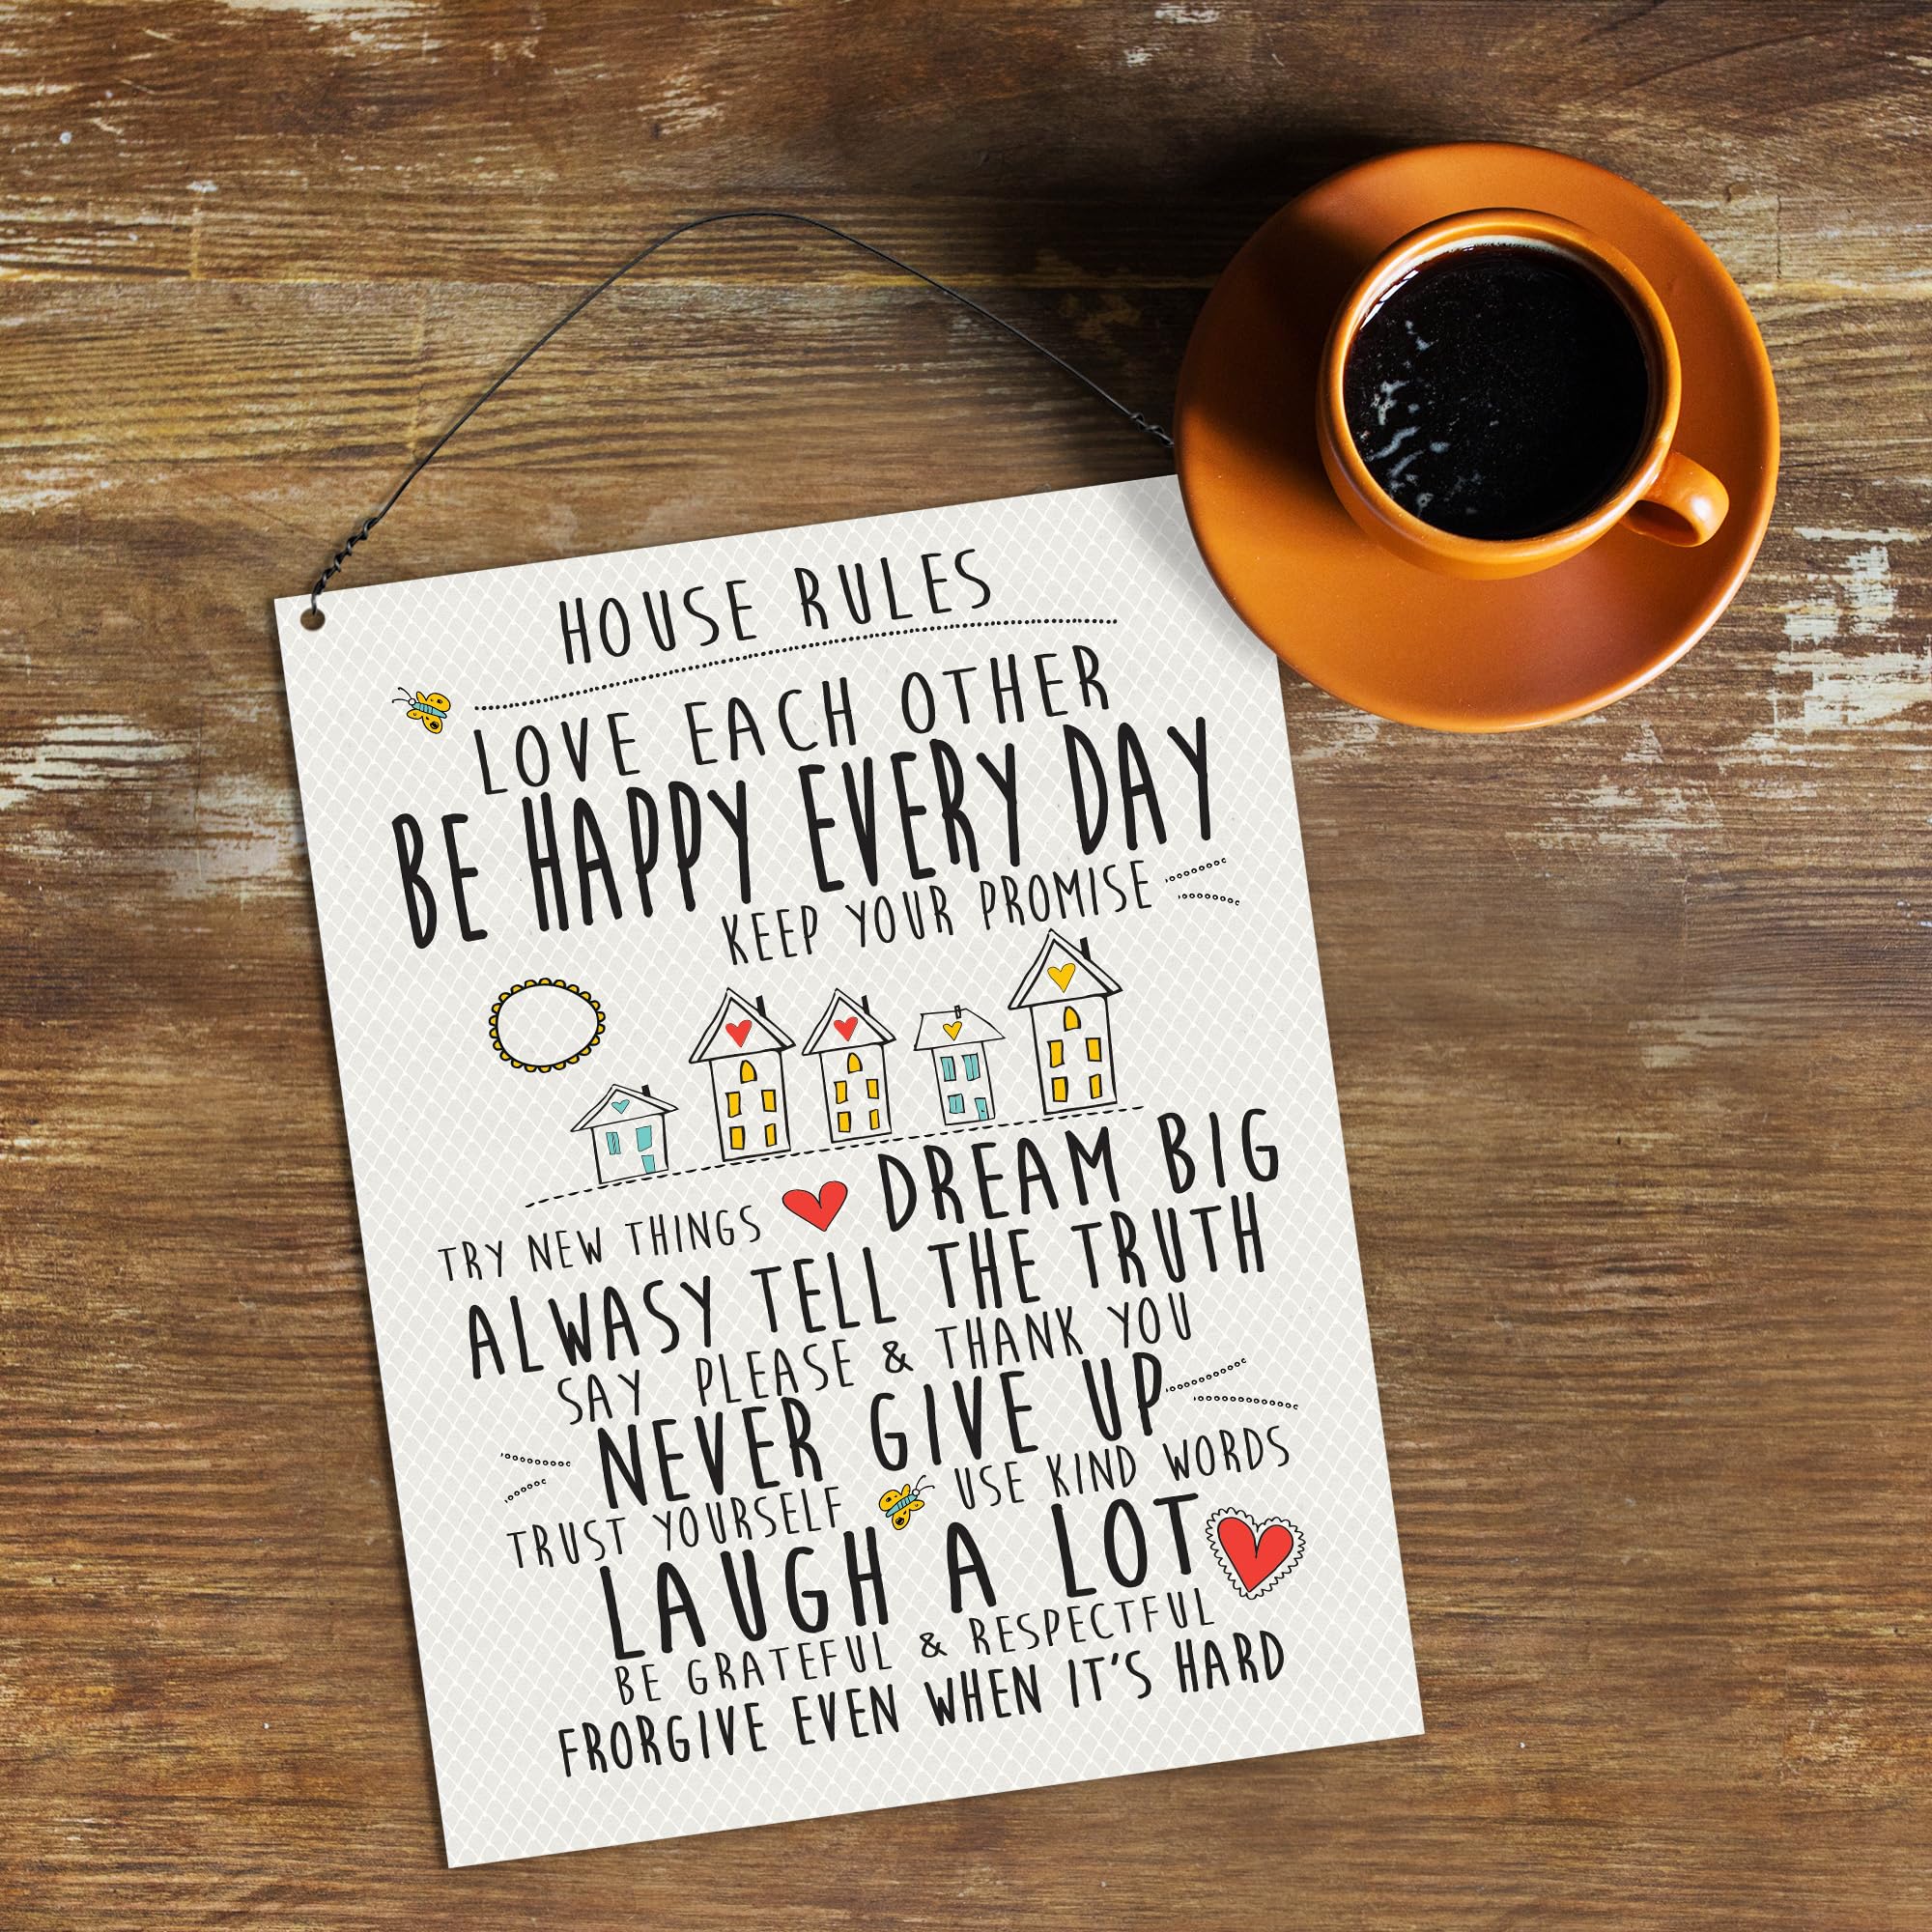 HOUSE RULES
LOVE EACH OTHER
BE HAPPY EVERY DAY
KEEP YOUR PROMISE
TRY NEW THINGS DREAM BIG
ALWASY TELL THE TRUTH
SAY PLEASE & THANK YOU
NEVER GIVE UP
TRUST YOURSELF USE KIND WORDS
LAUGH A LOT
BE GRATEFUL & RESPECTFUL
FRORGIVE EVEN WHEN IT'S HARD